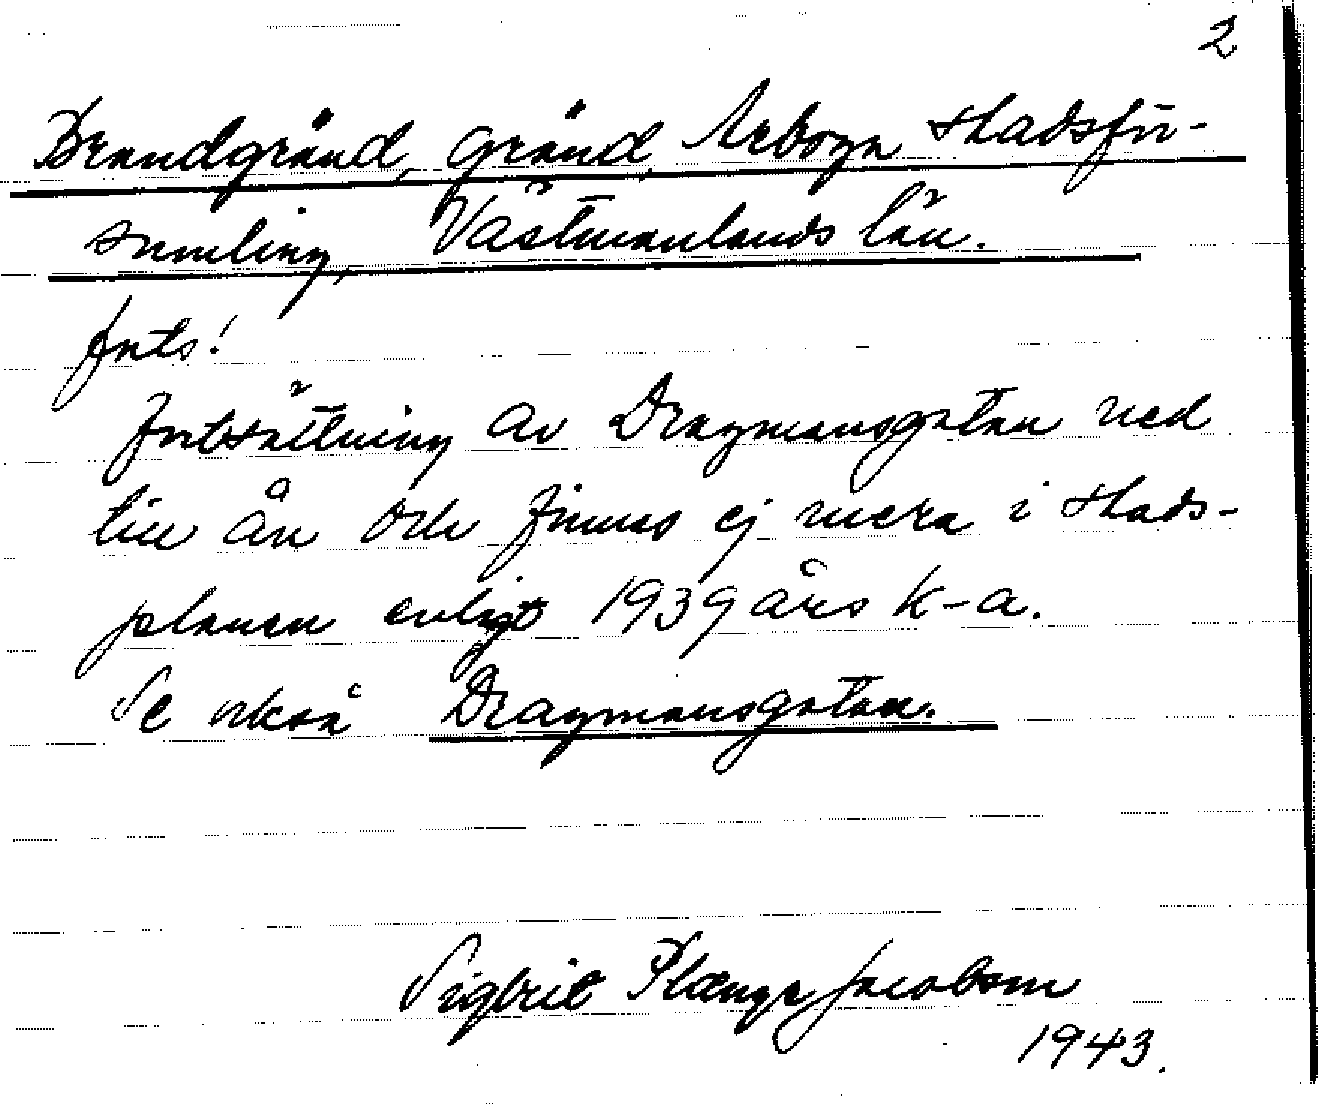 2
Brandgränd, gränd, Arboga stadsför-
samling, Västmanlands län.
forts!
fortsättning av Dragmansgatan ned
till ån och finnes ej mera i stads-
planen enligt 1939 års k-a.
Se också Dragmansgatan.
Sigbrit Plænge Jacobson
1943.